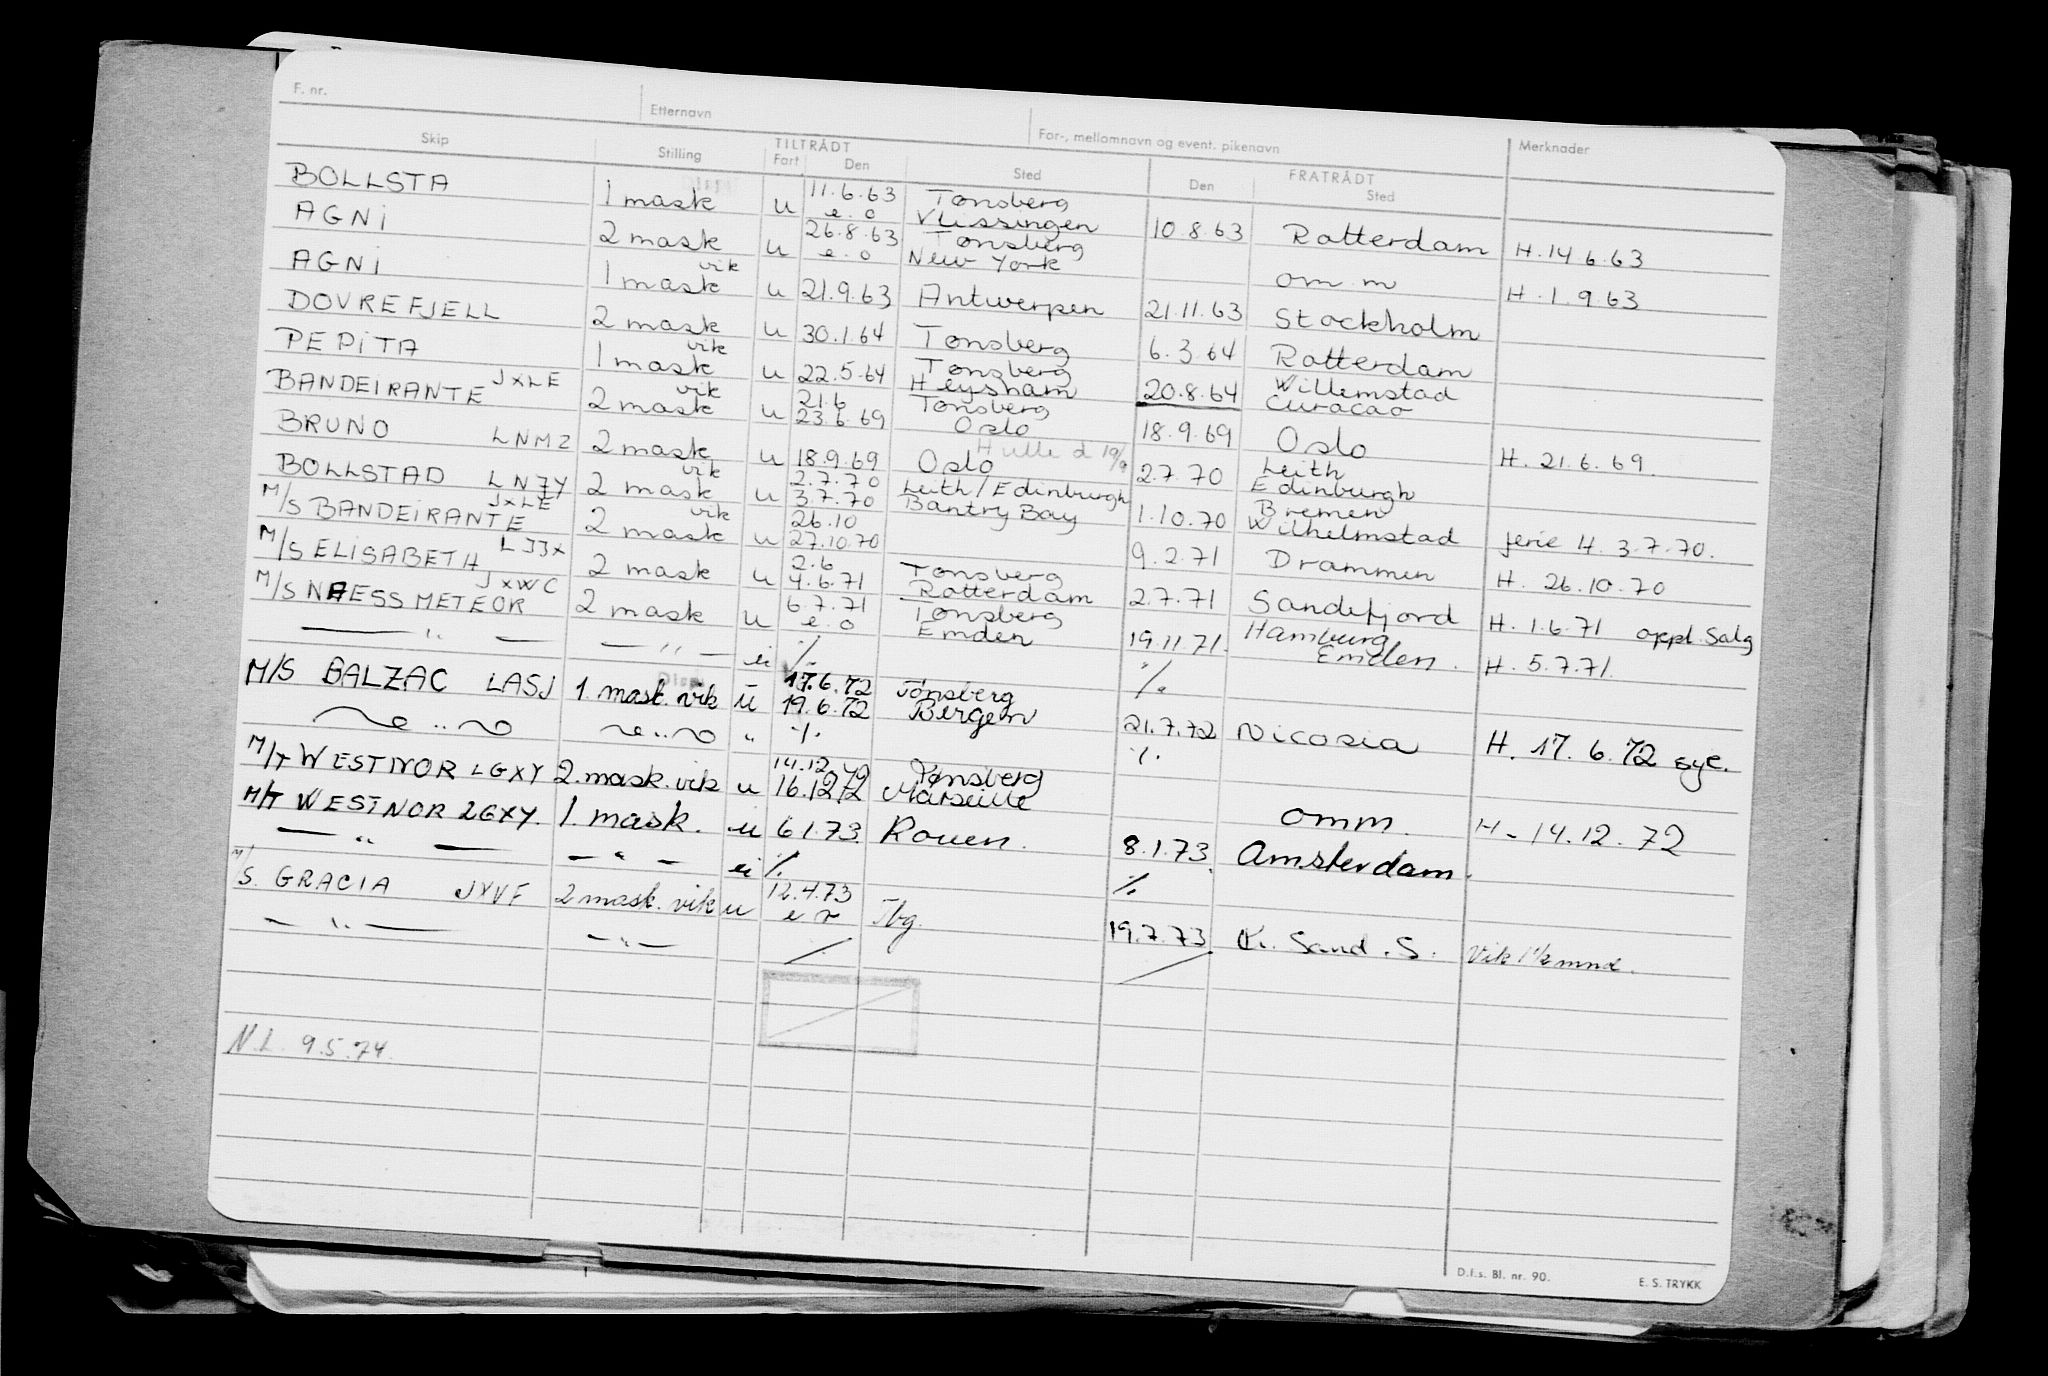 F. nr. Etternavn For-, mellomnavn og event. pikenavn Merknader
Skip Stilling TILTRÅDT Fart Den Sted FRATRÅDT Den Sted
BOLLSTA 1 mask u 11.6.63 e.o Tønsberg Vlissingen 10.8.63 Rotterdam H. 14 6.63
AGNI 2 mask u 26.8.63 e.o Tønsberg New York om m H. 1.9.63
AGNI 1 mask vik u 21.9.63 Antwerpen 21.11.63 Stockholm
DOVREFJELL 2 mask u 30.1.64 Tønsberg 6.3.64 Rotterdam
PEPITA 1 mask vik u 22.5.64 Tønsberg Heysham 20.8.64 Willemstad Curacao
BANDEIRANTE JXLE 2 mask vik u 21.6 23.6.69 Tønsberg Oslo 18.9.69 Oslo H. 21.6.69.
BRUNO LNMZ 2 mask u 18.9.69 Oslo 2.7.70 Leith Edinburgh
BOLLSTAD LNZY 2 mask vik u 2.7.70 3.7.70 Leith/Edinburgh Bantry Bay 1.10.70 Bremen Wilhelmstad ferie H. 3.7.70.
M/S BANDEIRANTE JXLE 2 mask vik u 26.10 27.10.70 9.2.71 Drammen H. 26.10.70
M/S ELISABETH LJJX 2 mask u 2.6 4.6.71 Tønsberg Rotterdam 2.7.71 Sandefjord H. 1.6.71 oppl. Salg
M/S NAESS METEOR JXWC 2 mask u 6.7.71 e.o Tønsberg Emden 19.11.71. Hamburg Emden. H. 5.7.71.
— " — — " — ei %. %.
M/S BALZAC LASJ 1. mask. vik u 17.6.72 19.6.72 Tønsberg Bergen 21.7.72 Nicosia H. 17.6.72 syc.
— " — — " — " %. %.
M/T WESTNOR LGXY 2. mask. vik u 14.12. 16.12.72 Tønsberg Marseille omm. H. 14.12.72
M/T WESTNOR LGXY. 1. mask. u 6 1.73. Rouen. 8.1.73. Amsterdam.
— " — — " — ei %. %.
M/S. GRACIA JXVF 2 mask. vik u 12.4.73 e o Tbg. 19.7.73. Kr. Sand. S. Vik 1½ mnd.
— " — — " — / /
N.L. 9.5.74.
D.f.s. Bl. nr. 90. E. S. TRYKK